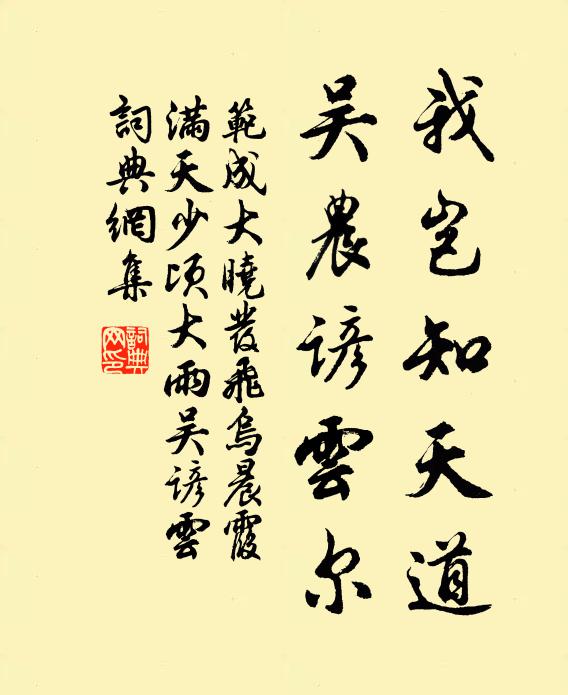 我岂知天道
吴農諺雲尔
範成大曉發飛烏晨霞
滿天少頃大雨吴諺雲
詞典網集
詞典網印